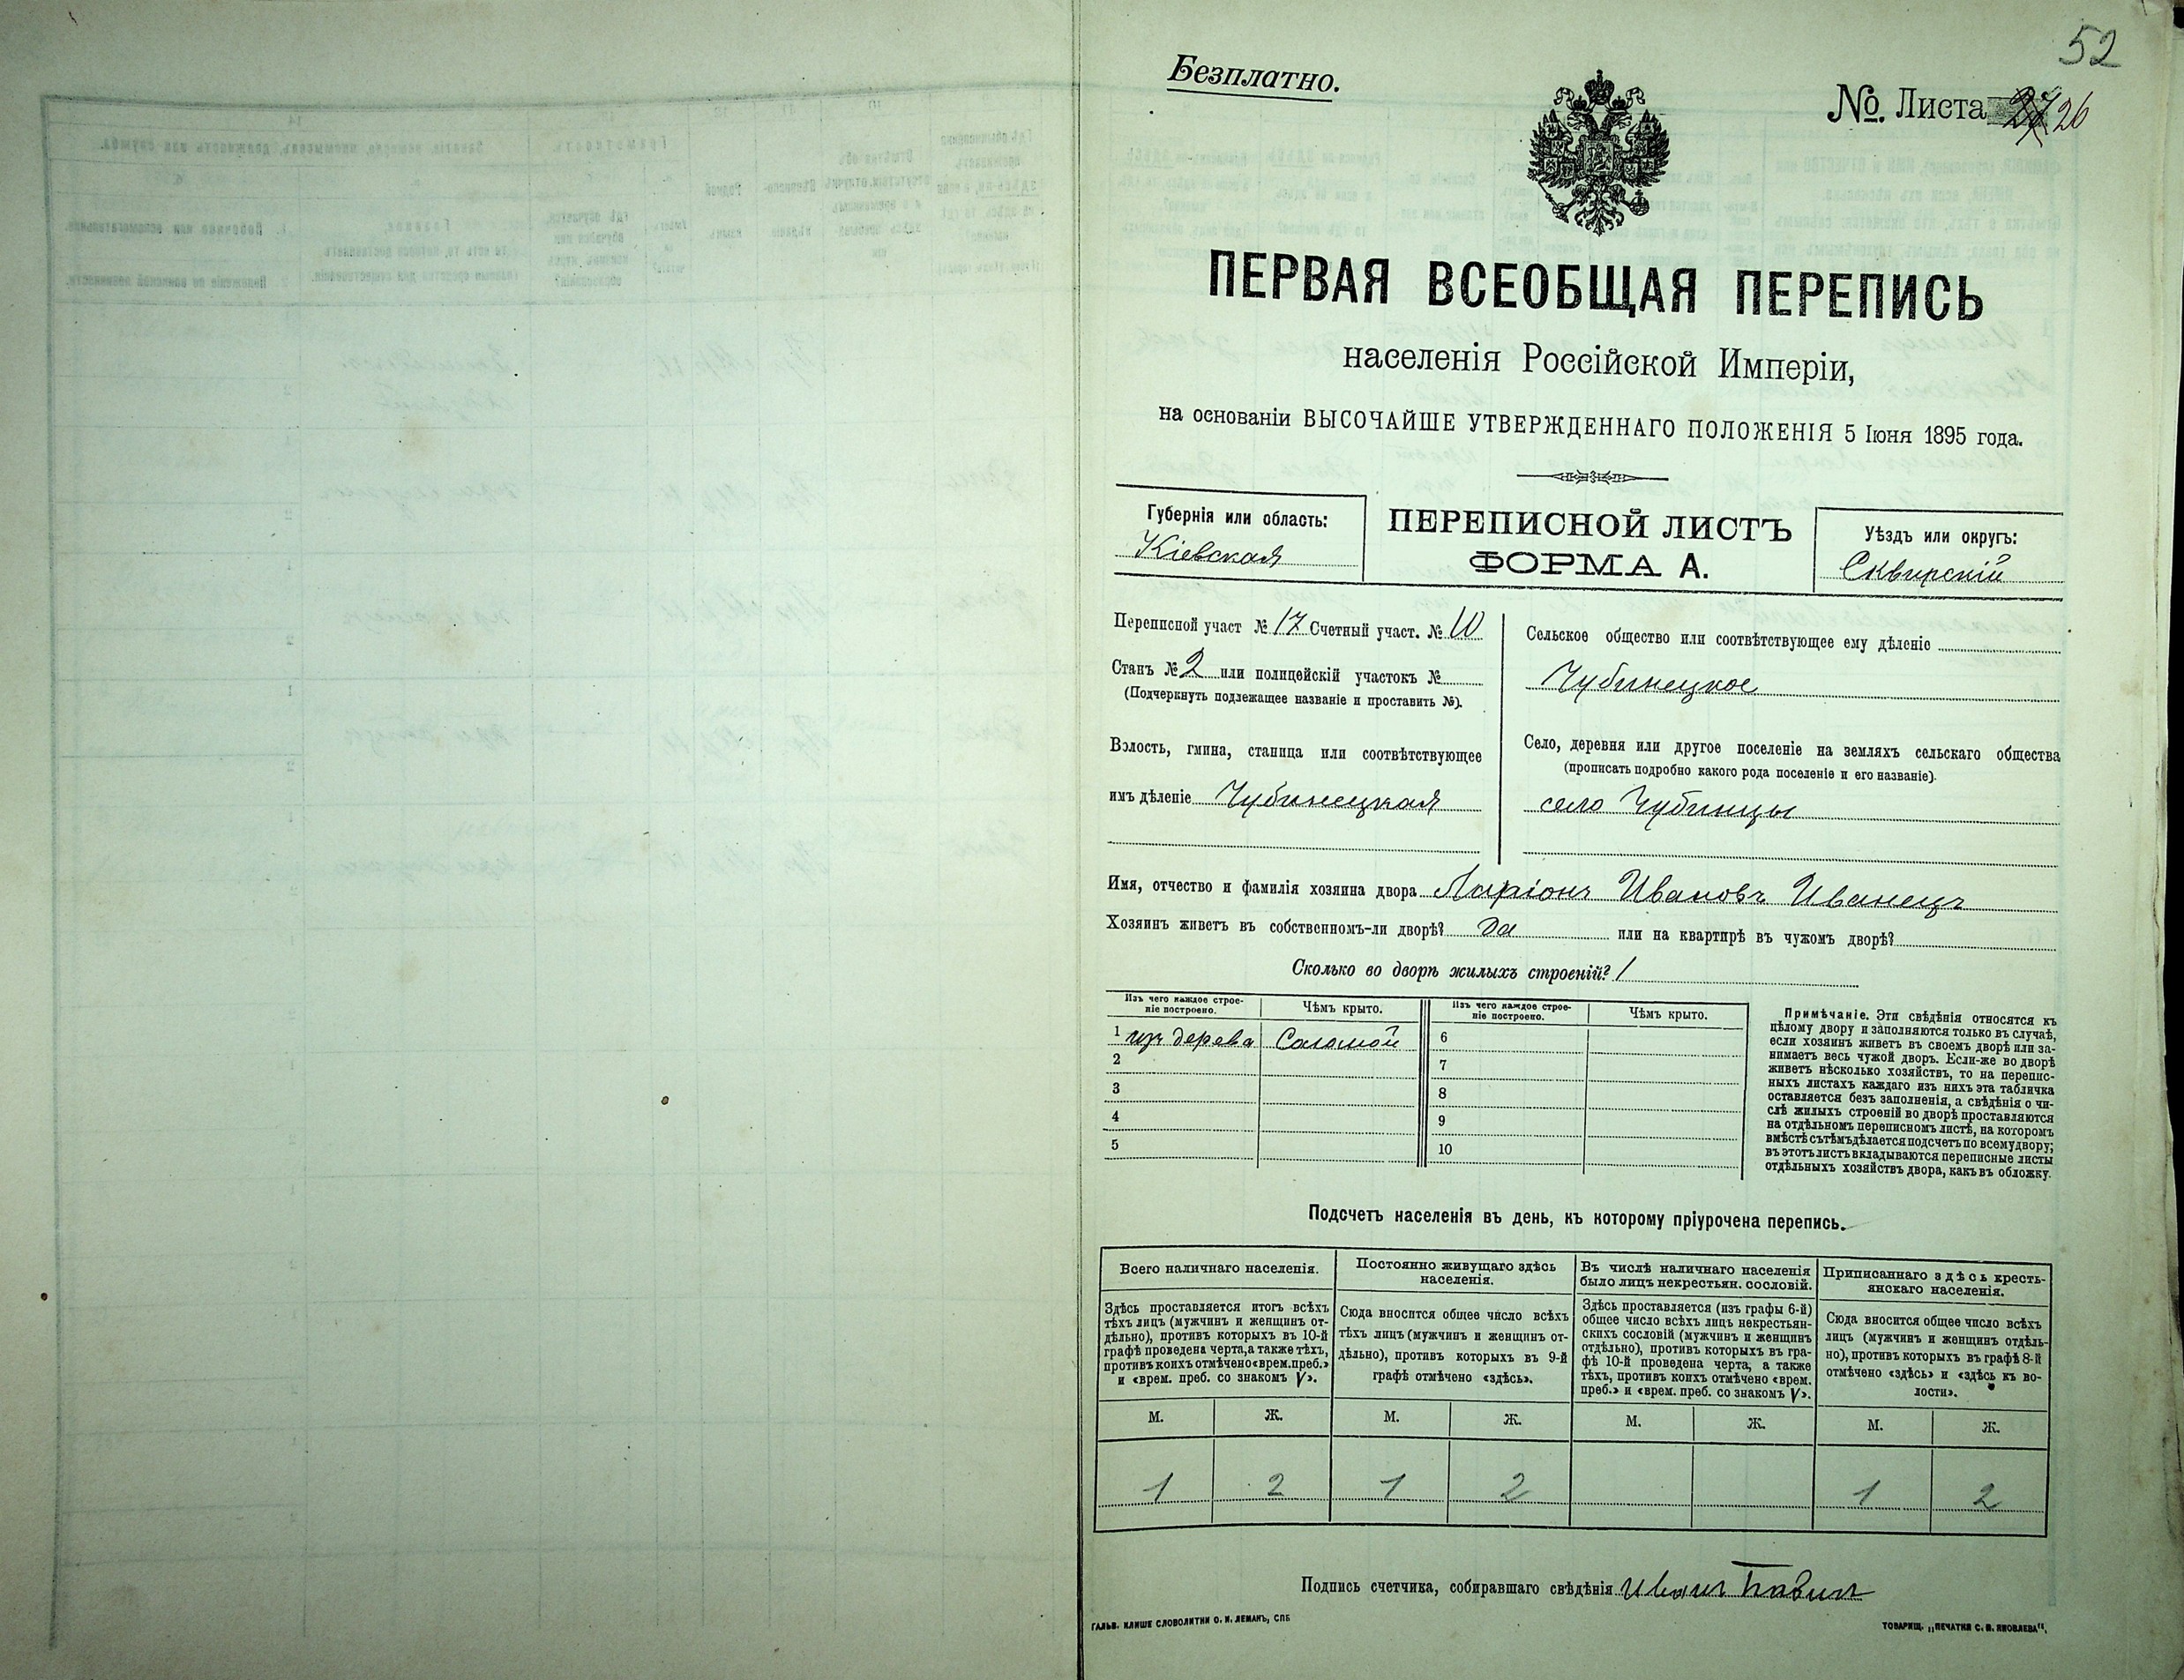 52
Безплатно.
№. Листа 26
ПЕРВАЯ ВСЕОБЩАЯ ПЕРЕПИСЬ
населенія Россійской Имперіи,
на основаніи ВЫСОЧАЙШЕ УТВЕРЖДЕННАГО ПОЛОЖЕНІЯ 5 Іюня 1895 года.
Губернія или область:
Кіевская
ПЕРЕПИСНОЙ ЛИСТЪ
ФОРМА А.
Уѣздъ или округъ:
Сквирскій
Переписной участ № 17 Счетный участ. № 10
Станъ № 2 или полицейскій участокъ №
(Подчеркнуть подлежащее названіе и проставить №).
Волость, гмина, станица или соотвѣтствующее
имъ дѣленіе Чубинецкая
Сельское общество или соотвѣтствующее ему дѣленіе
Чубинецкое
Село, деревня или другое поселеніе на земляхъ сельскаго общества
(прописать подробно какого рода поселеніе и его названіе).
село Чубинцы
Имя, отчество и фамилія хозяина двора Ларіонъ Ивановъ Иванецъ
Хозяинъ живетъ въ собственномъ-ли дворѣ? да или на квартирѣ въ чужомъ дворѣ?
Сколько во дворѣ жилыхъ строеній? 1
Изъ чего каждое строе-
ніе построено.
Чѣмъ крыто.
Изъ чего каждое строе-
ніе построено.
Чѣмъ крыто.
1 изъ дерева Соломой 6
2 7
3 8
4 9
5 10
Примѣчаніе. Эти свѣдѣнія относятся къ
цѣлому двору и заполняются только въ случаѣ,
если хозяинъ живетъ въ своемъ дворѣ или за-
нимаетъ весь чужой дворъ. Если-же во дворѣ
живетъ нѣсколько хозяйствъ, то на перепис-
ныхъ листахъ каждаго изъ нихъ эта табличка
оставляется безъ заполненія, а свѣдѣнія о чи-
слѣ жилыхъ строеній во дворѣ проставляются
на отдѣльномъ переписномъ листѣ, на которомъ
вмѣстѣ съ тѣмъ дѣлается подсчетъ по всему двору;
въ этотъ листъ вкладываются переписные листы
отдѣльныхъ хозяйствъ двора, какъ въ обложку.
Подсчетъ населенія въ день, къ которому пріурочена перепись.
Всего наличнаго населенія.
Здѣсь проставляется итогъ всѣхъ
тѣхъ лицъ (мужчинъ и женщинъ от-
дѣльно), противъ которыхъ въ 10-й
графѣ проведена черта, а также тѣхъ,
противъ коихъ отмѣчено «врем. преб.»
и «врем. преб. со знакомъ V».
Постоянно живущаго здѣсь
населенія.
Сюда вносится общее число всѣхъ
тѣхъ лицъ (мужчинъ и женщинъ от-
дѣльно), противъ которыхъ въ 9-й
графѣ отмѣчено «здѣсь».
Въ числѣ наличнаго населенія
было лицъ некрестьян. сословій.
Здѣсь проставляется (изъ графы 6-й)
общее число всѣхъ лицъ некрестьян-
скихъ сословій (мужчинъ и женщинъ
отдѣльно), противъ которыхъ въ гра-
фѣ 10-й проведена черта, а также
тѣхъ, противъ коихъ отмѣчено «врем.
преб.» и «врем. преб. со знакомъ V».
Приписаннаго здѣсь кресть-
янскаго населенія.
Сюда вносится общее число всѣхъ
лицъ (мужчинъ и женщинъ отдѣль-
но), противъ которыхъ въ графѣ 8-й
отмѣчено «здѣсь» и «здѣсь къ во-
лости».
М. Ж. М. Ж. М. Ж. М. Ж.
1 2 1 2 1 2
Подпись счетчика, собиравшаго свѣдѣнія Иванъ
ГАЛЬВ. КЛИШЕ СЛОВОЛИТНИ О. И. ЛЕМАНЪ, СПБ
ТОВАРИЩ. „ПЕЧАТНЯ С. П. ЯКОВЛЕВА".